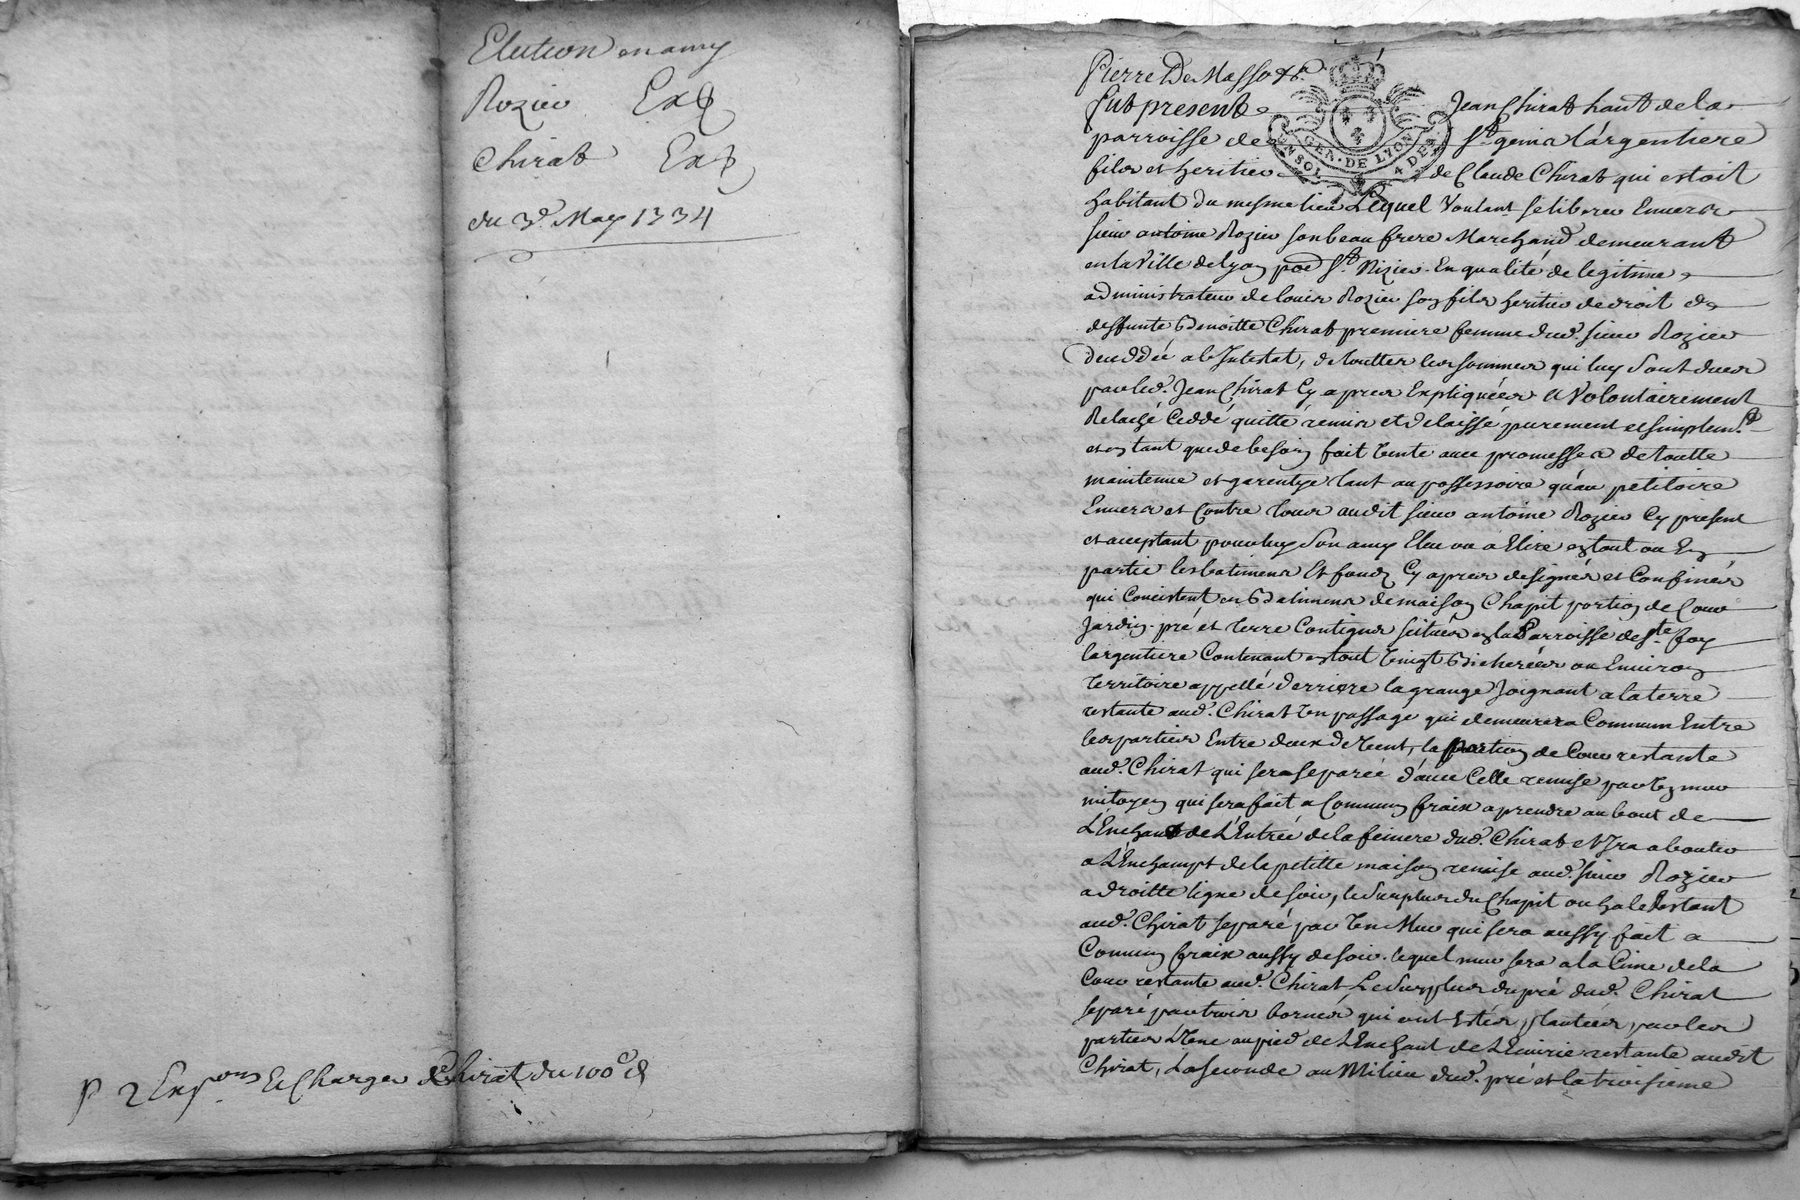 Election en amy
Rozier Exp
Chirat Exp
du 3e. May 1734
P 2 Exp.ons Et Charges de Chirat du 100e d
Pierre De Masso &r.
fut present Jean Chirat hant de la
parroisse de St. genis l'argentiere
fils et heritier de Claude Chirat qui estoit
habitant du mesme lieu Lequel Voulant se liberer Envers
sieur antoine Rozier son beau frere Marchand demeurant
en la Ville de Lyon pssе St. Nizier. En qualité de legitime
administrateur de louis Rozier son fils heritier de droit de
deffunte Benoitte Chirat premiere femme dud. sieur Rozier
deceddée ab Intestat, de touttes les sommes qui luy sont dues
par led. Jean Chirat Cy apres Expliquées a Volontairement
Relaché Ceddé quitté remis et delaissé purement et simplemt.
et en tant que de besoin fait Vente avec promesses de toutte
maintenue et garentye tant au possessoire qu'au petitoire
Envers et Contre tous audit sieur antoine Rozier Cy present
et acceptant pour luy son amy Elu ou a Elire en tout ou En
partie les batimens Et fonds Cy apres designés et Confinés
qui Concistent en Batimens de maison Chapit portion de Cour
Jardin pré et terre Contigus scitués en la Parroisse de Ste. foy
largentiere Contenant en tout Vingt Bicherées ou Environ
territoire appellé derriere la grange Joignant a la terre
restante aud. Chirat Un passage qui demeurera Commun Entre
les parties Entre deux de Vent, la portion de Cour restante
aud. Chirat qui sera separée d'avec Celle remise par Un mur
mitoyen qui sera fait a Commun fraix a prendre au bout de
L'Enchant de L'Entrée de la feniere dud. Chirat et Ira aboutir
a L'Enchampt de la petitte maison remise aud. sieur Rozier
a droitte ligne de soir, le surplus du Chapit ou hale Restant
aud. Chirat separé par Un Mur qui sera aussy fait a
Commun fraix aussy de soir. lequel mur sera a la Cime de la
Cour restante aud. Chirat Le Surplus du pré dud. Chirat
separé par trois bornes qui ont Estés plantées par les
parties L'Une au pied de L'Enchant de L'Ecuirie restante audit
Chirat, La seconde au Milieu dud. pré et la troisieme
GEN. DE LYON